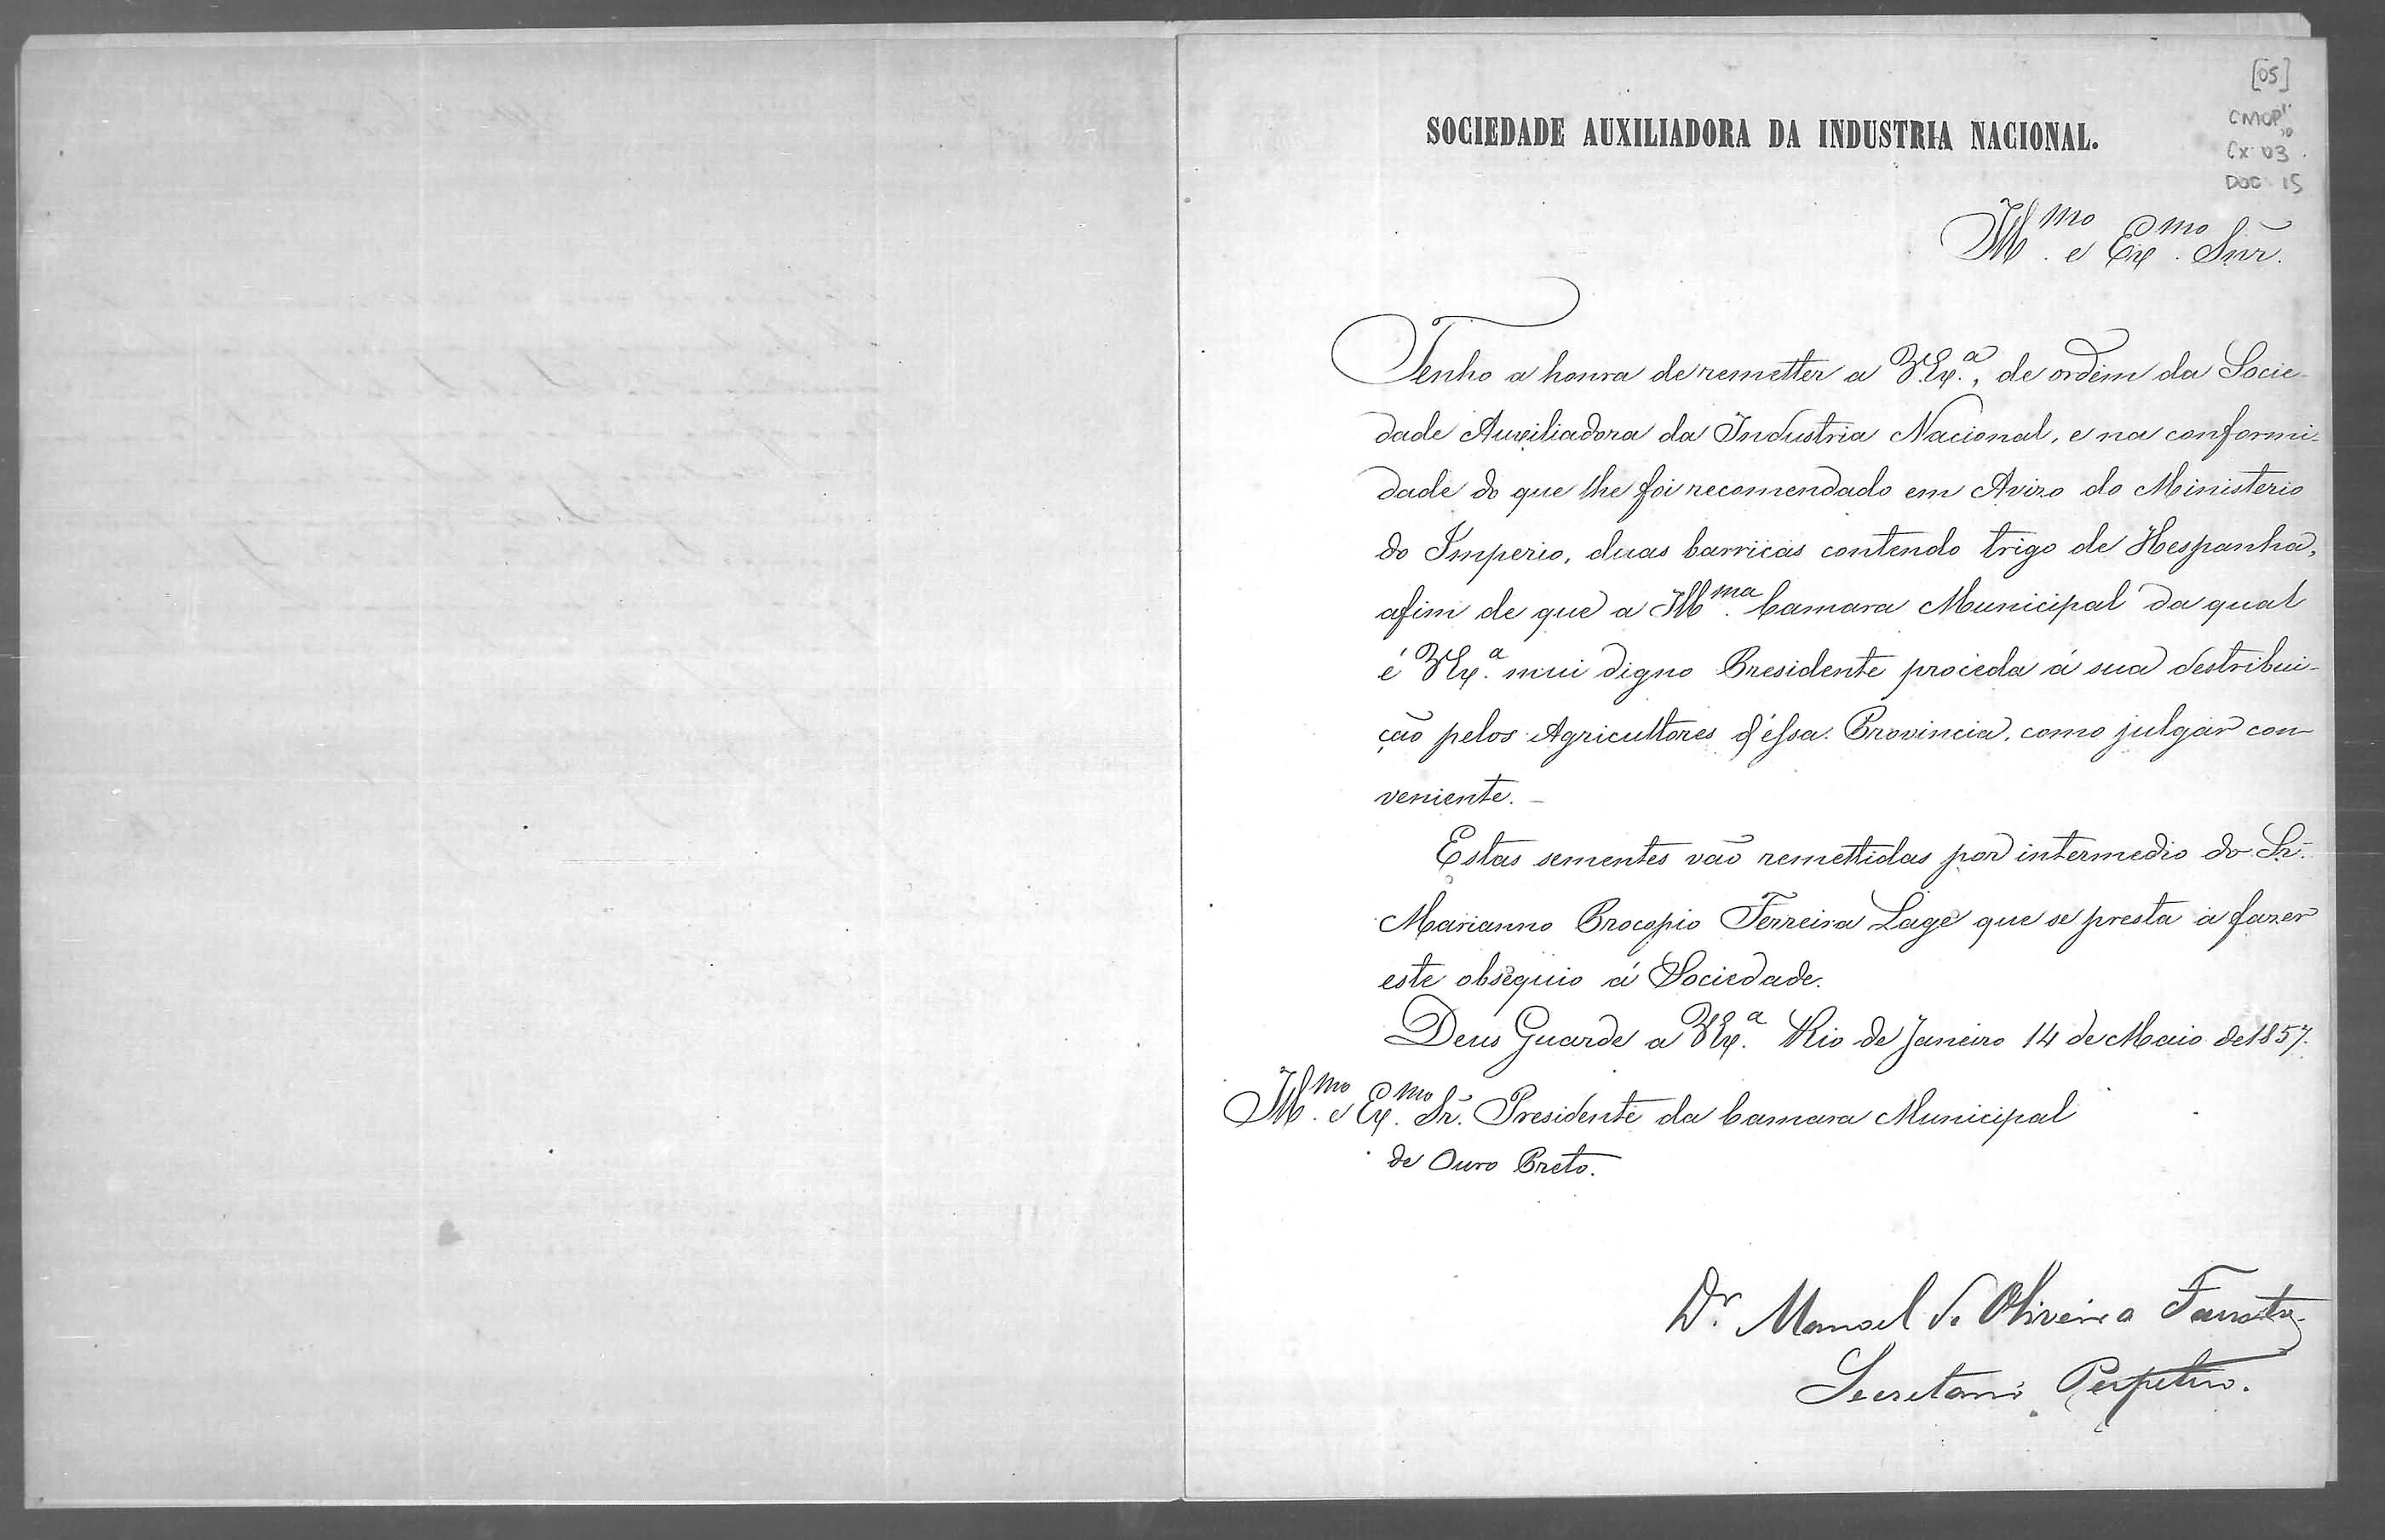 [05]
CMOP
Cx 03
DOC 15
SOCIEDADE AUXILIADORA DA INDUSTRIA NACIONAL.
Ill.mo e Ex.mo Snr.
Tenho a honra de remetter a V.Ex.a, de ordem da Socie-
dade Auxiliadora da Industria Nacional, e na conformi-
dade do que lhe foi recomendado em Aviso do Ministerio
do Imperio, duas barricas contendo trigo de Hespanha,
afim de que a Ill.ma Camara Municipal da qual
é V.Ex.a mui digno Presidente proceda á sua destribui-
ção pelos Agricultores d'éssa Provincia, como julgar con-
veniente.
Estas sementes vão remettidas por intermedio do Sr.
Marianno Procopio Ferreira Lage que se presta a fazer
este obsequio á Sociedade.
Deus Guarde a V.Ex.a Rio de Janeiro 14 de Maio de 1857.
Ill.mo e Ex.mo Sr. Presidente da Camara Municipal
de Ouro Preto.
Dr. Manoel de Oliveira Fausto
Secretario Perpetuo.